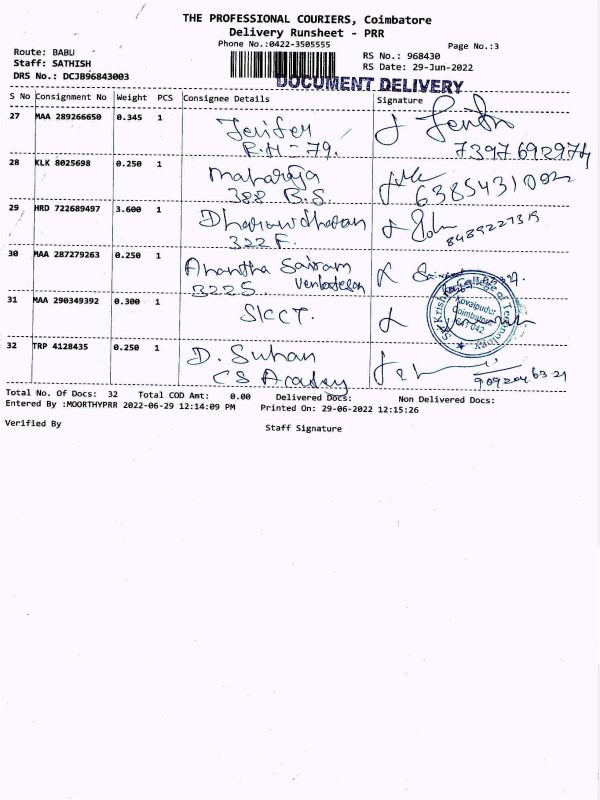 THE PROFESSIONAL COURIERS, Coimbatore
Delivery Runsheet - PRR
Phone No.:0422-3505555
Page No.:3
Route: BABU
RS No.: 968430
Staff: SATHISH
RS Date: 29-Jun-2022
DRS No.: DCJB96843003
DOCUMENT DELIVERY
S No Consignment No Weight PCS Consignee Details Signature
27 MAA 289266650 0.345 1 Jenifer
R.H - 79. 7397692974
28 KLK 8025698 0.250 1 Maharaja
388 B.S 6385431092
29 HRD 722689497 3.600 1
322 F. 8489227319
30 MAA 287279263 0.250 1 Anantha Sairam
322 S. Venkatesan
31 MAA 290349392 0.300 1 SKCT.
Sri Krishna College of Technology
Kovaipudur
Coimbatore
641 042
32 TRP 4128435 0.250 1 D. Suhan
CS
Total No. Of Docs: 32 Total COD Amt: 0.00 Delivered Docs: Non Delivered Docs:
Entered By :MOORTHYPRR 2022-06-29 12:14:09 PM Printed On: 29-06-2022 12:15:26
Verified By
Staff Signature